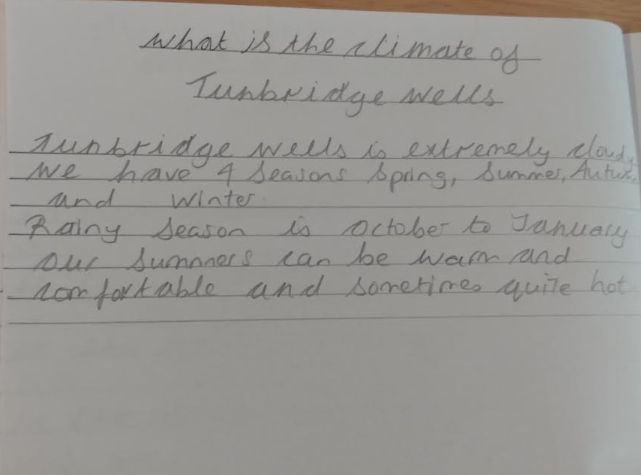 What is the climate of
Tunbridge Wells
Tunbridge Wells is extremely cloudy
We have 4 seasons Spring, Summer, Autumn
and Winter
Rainy Season is October to January
Our summers can be warm and
comfortable and sometimes quite hot